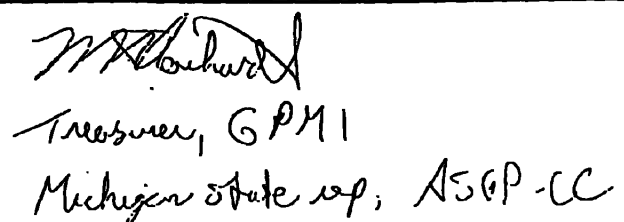 Treasurer, GPMI
Michigan state rep, ASGP-CC